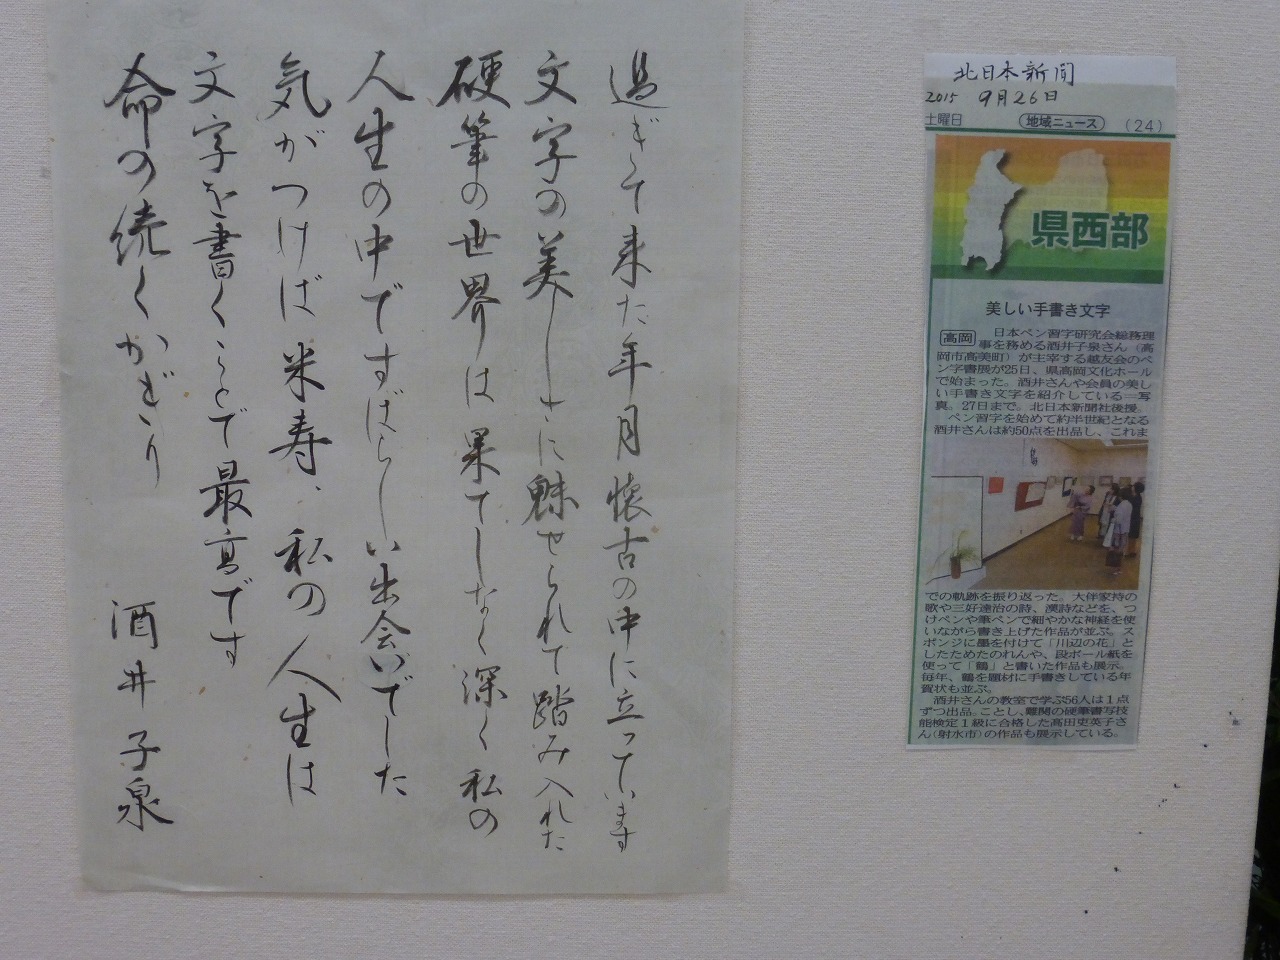 過ぎて来た年月懐古の中に立っています
文字の美しさに魅せられて踏み入れた
硬筆の世界は果てしなく深く私の
人生の中ですばらしい出会いでした
気がつけば米寿、私の人生は
文字を書くことで最高です
命の続くかぎり
酒井子泉
北日本新聞
2015 9月26日
土曜日
地域ニュース
(24)
県西部
美しい手書き文字
高岡 日本ペン習字研究会総務理
事を務める酒井子泉さん(高
岡市高美町)が主宰する越友会のペ
ン字書展が25日、県高岡文化ホール
で始まった。酒井さんや会員の美し
い手書き文字を紹介している=写
真。27日まで。北日本新聞社後援。
ペン習字を始めて約半世紀となる
酒井さんは約50点を出品し、これま
での軌跡を振り返った。大伴家持の
歌や三好達治の詩、漢詩などを、つ
けペンや筆ペンで細やかな神経を使
いながら書き上げた作品が並ぶ。ス
ポンジに墨を付けて「川辺の花」と
したためたのれんや、段ボール紙を
使って「鶴」と書いた作品も展示。
毎年、鶴を題材に手書きしている年
賀状も並ぶ。
酒井さんの教室で学ぶ56人は1点
ずつ出品。ことし、難関の硬筆書写技
能検定1級に合格した高田吏英子さ
ん(射水市)の作品も展示している。